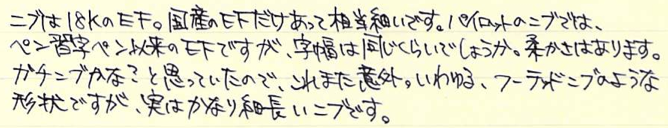 ニブは18KのEF。国産のEFだけあって相当細いです。パイロットのニブでは、
ペン習字ペン以来のEFですが、字幅は同じくらいでしょうか。柔かさはあります。
ガチニブかな?と思っていたので、これまた意外。いわゆる、フーデッドニブのような
形状ですが、実はかなり細長いニブです。